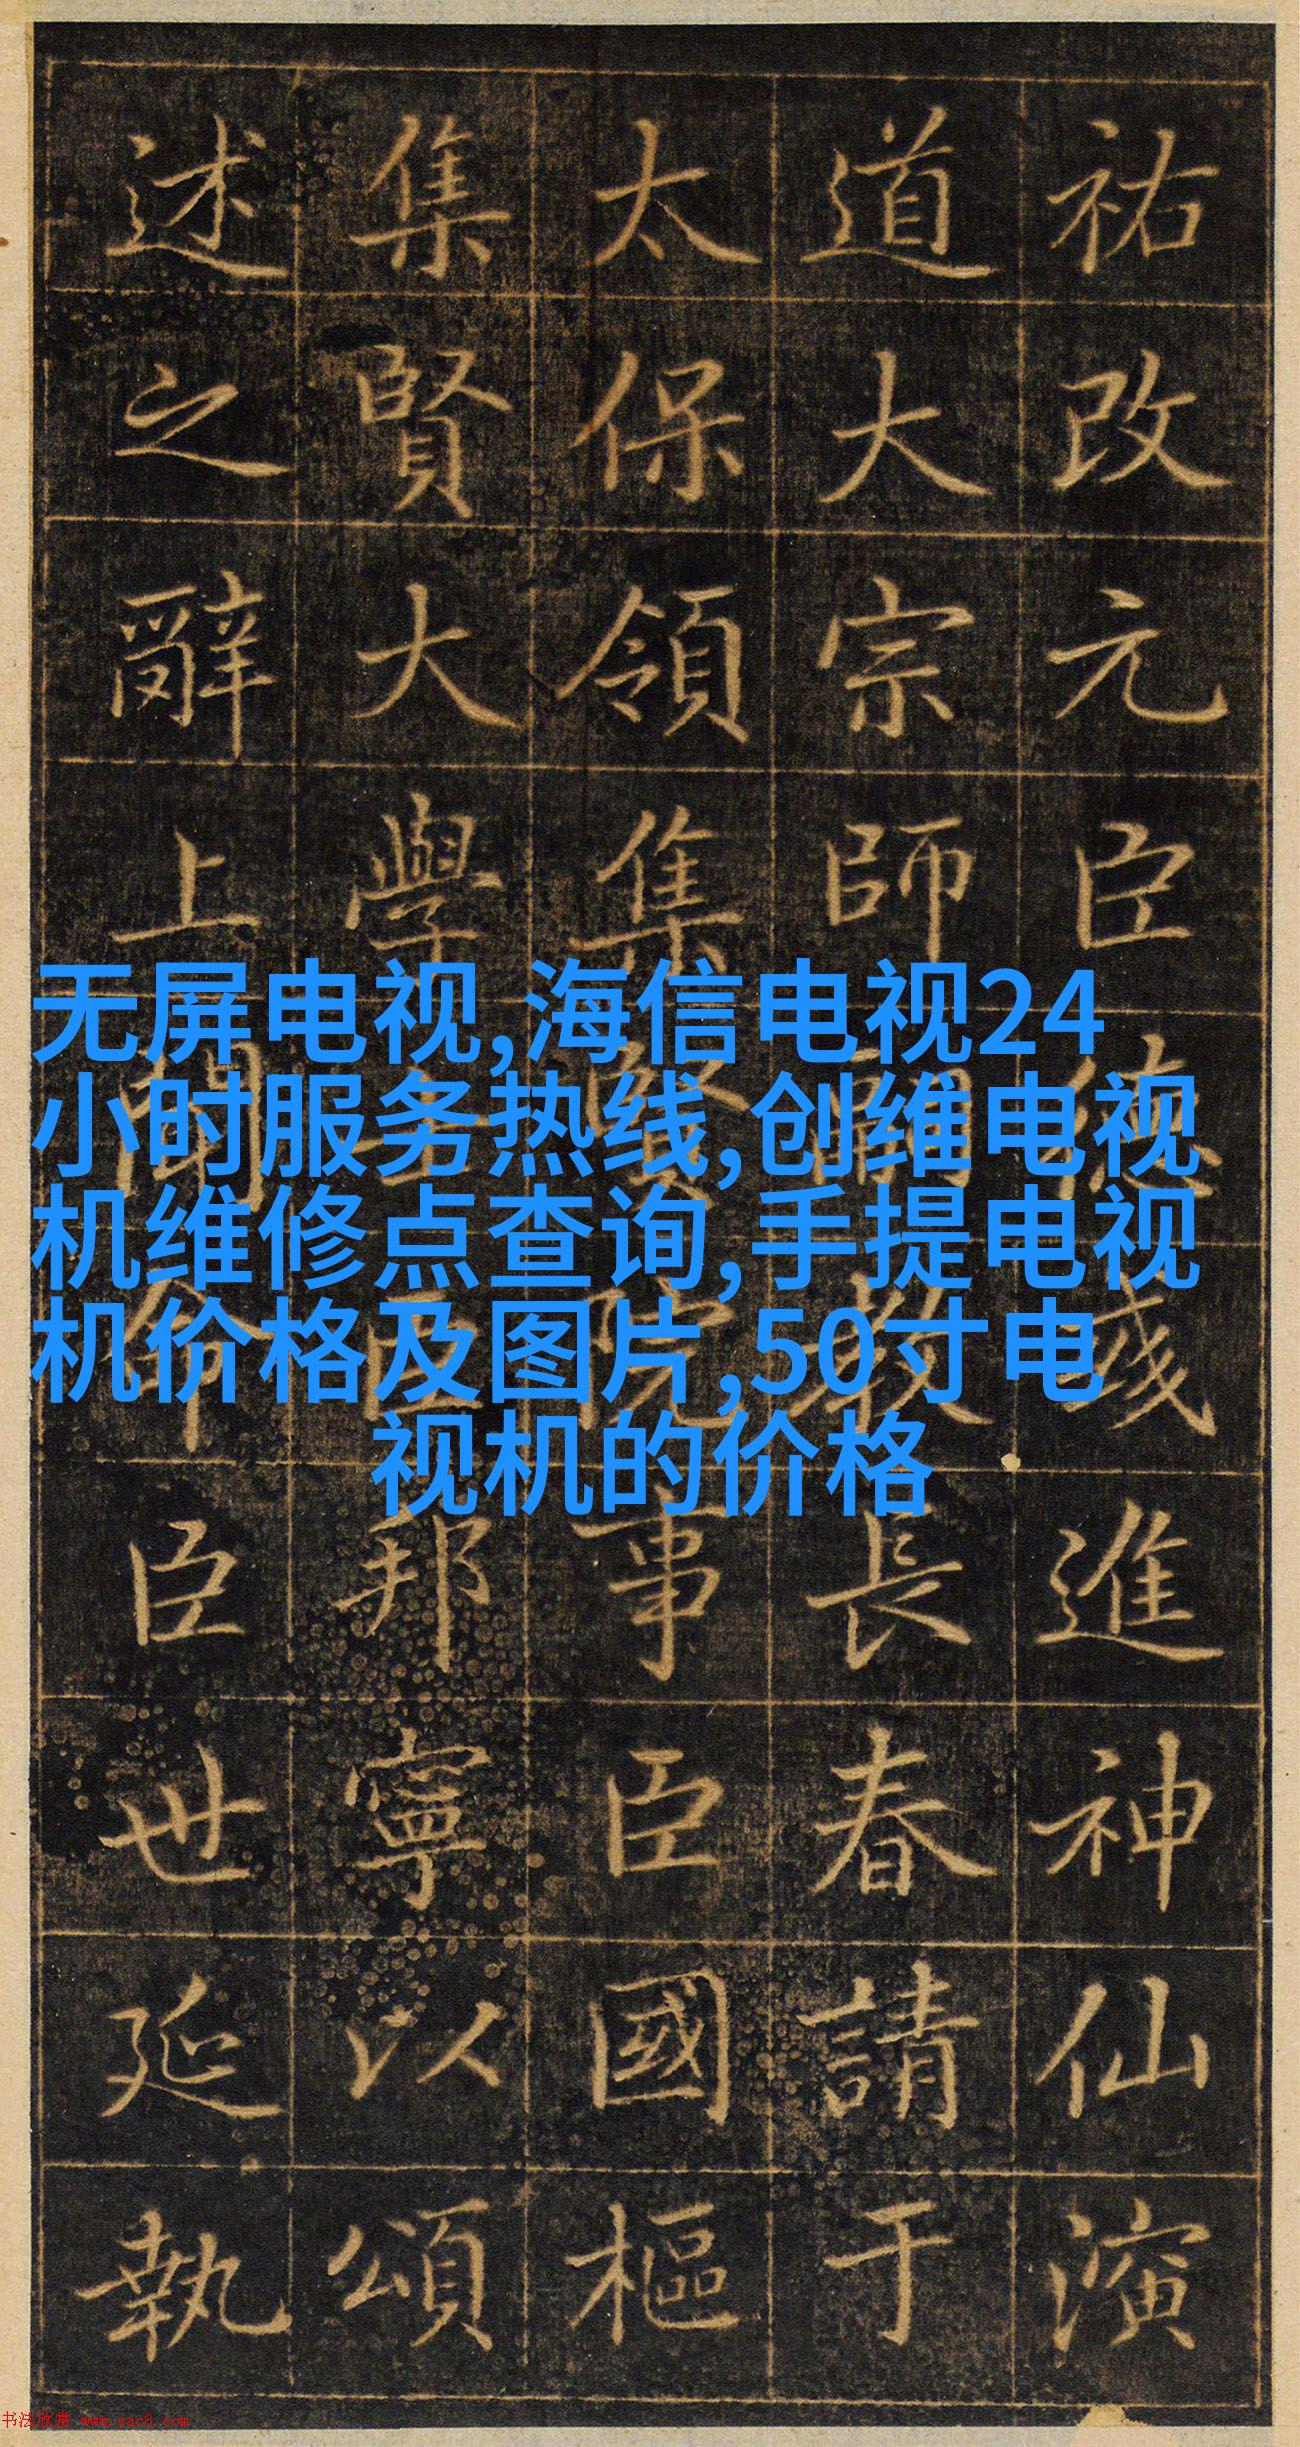 无屏电视,海信电视24
小时服务热线,创维电视
机维修点查询,手提电视
机价格及图片,50寸电
视机的价格
祐改元臣德彧進神仙演
道大宗師嗣教長春請于
太保領集賢院事臣國樞
集賢大學士臣邦寧以頌
述之辭上聞命臣世延執
书法欣赏 www.yac8.com